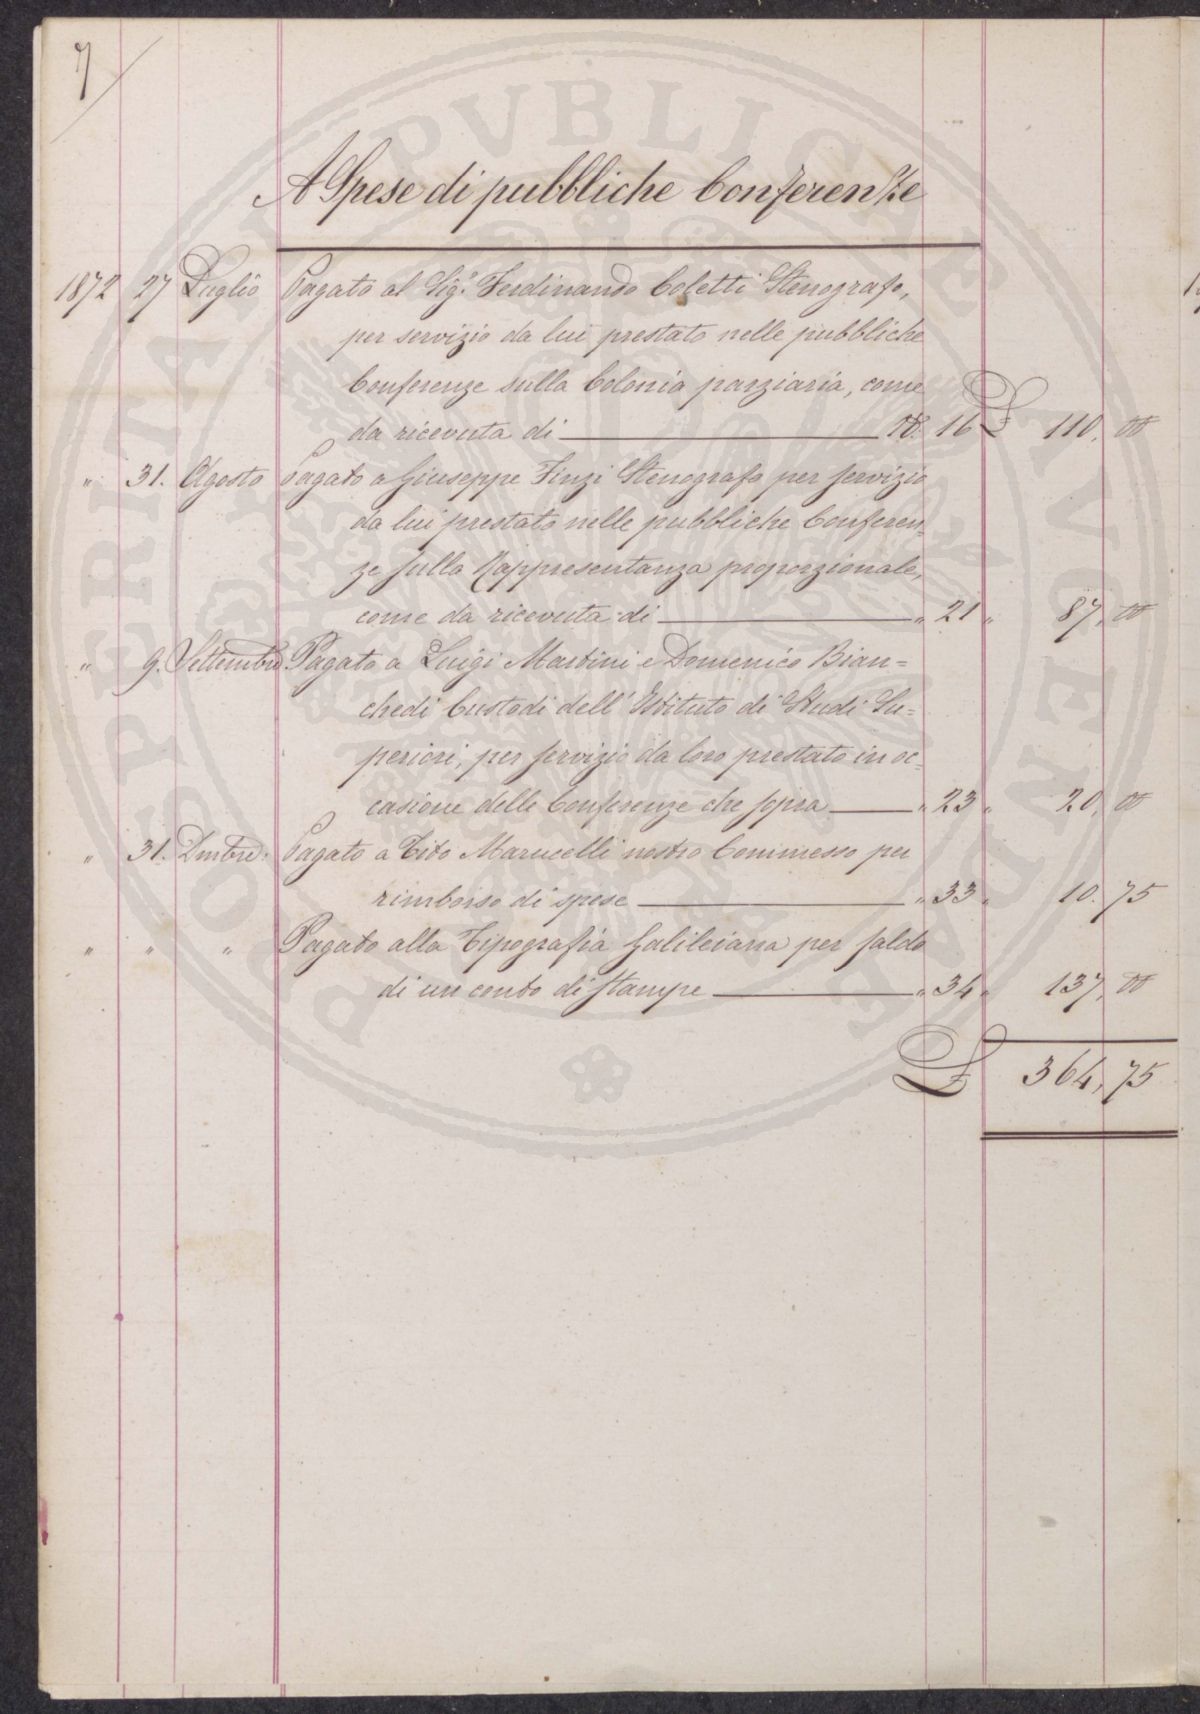 7
A Spese di pubbliche Conferenze
1872 27 Luglio Pagato al Sigr. Ferdinando Coletti Stenografo,
per servizio da lui prestato nelle pubbliche
Conferenze sulla Colonia parziaria, come
da ricevuta di N. 16 £ 110, 00
" 31. Agosto Pagato a Giuseppe Finzi Stenografo per servizio
da lui prestato nelle pubbliche Conferen=
ze sulla Rappresentanza proporzionale,
come da ricevuta di " 21 " 87, 00
" 9. Settembre Pagato a Luigi Martini e Domenico Bian=
chedi Custodi dell'Istituto di Studi Su=
periori, per servizio da loro prestato in oc=
casione delle Conferenze che sopra " 23 " 20, 00
" 31. Dmbre: Pagato a Tito Marucelli nostro Commesso per
rimborso di spese " 33 " 10. 75
" " " Pagato alla Tipografia Galileiana per saldo
di un conto di stampe " 34 " 137, 00
£ 364, 75
PROSPERITATI PVBLICAE AVGENDAE